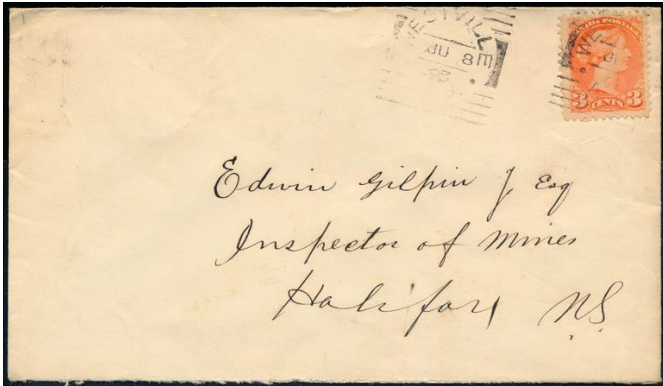 CANADA POSTAGE
3 CENTS 3
Edwin Gilpin J Esq
Inspector of Mines
Halifax NS